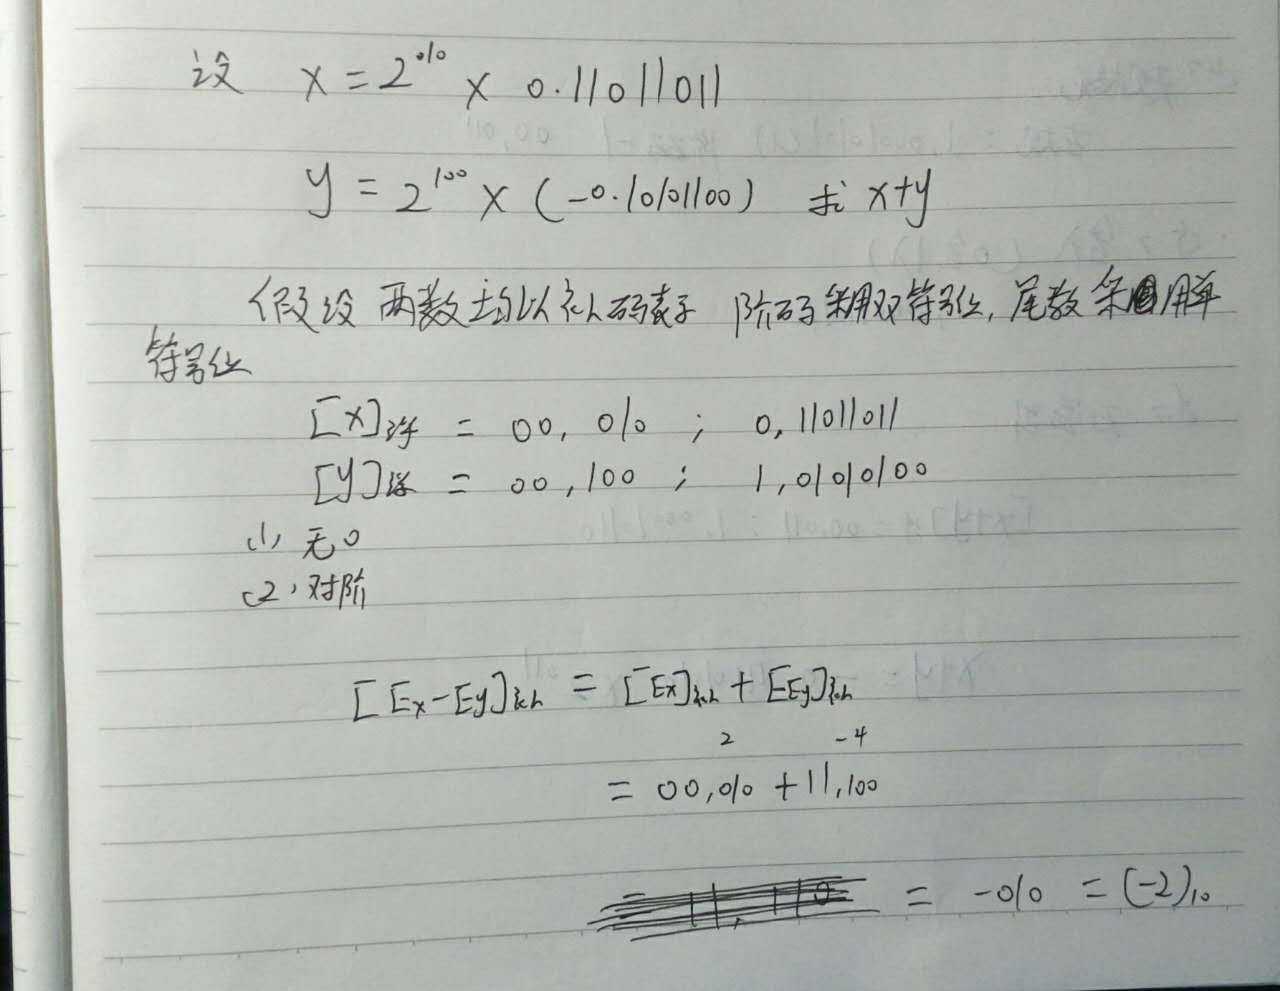 设 x = 2^010 × 0.11011011
y = 2^100 × (-0.10101100) 求 x+y
假设两数均以补码表示 阶码采用双符号位, 尾数采用单
符号位
[x]浮 = 00, 010 ; 0, 11011011
[y]浮 = 00, 100 ; 1, 01010100
(1) 无0
(2) 对阶
[Ex-Ey]补 = [Ex]补 + [Ey]补
2 -4
= 00,010 + 11,100
= -010 = (-2)10